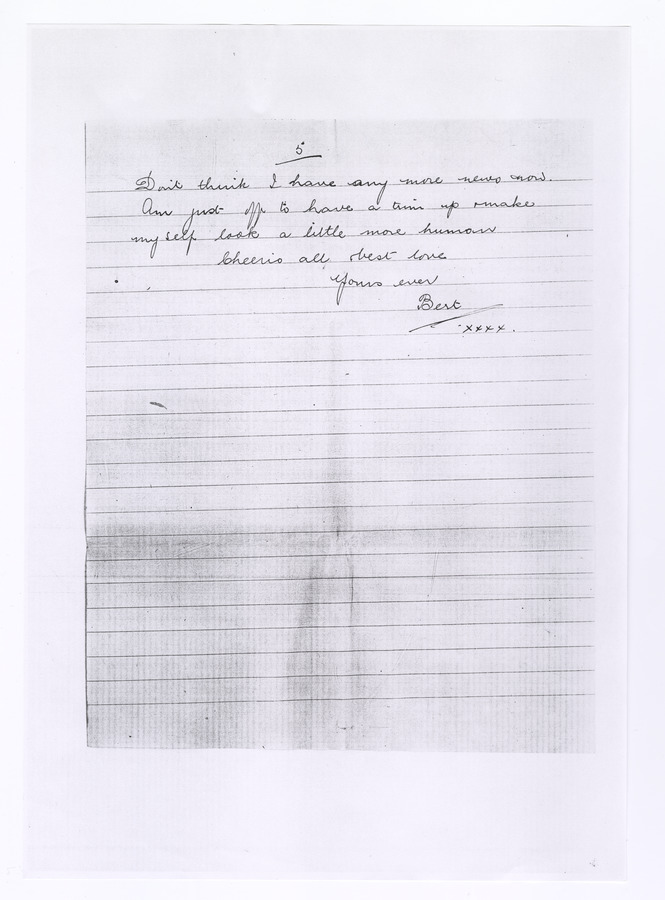 5
Don't think I have any more news now.
Am just off to have a trim up & make
myself look a little more human
Cheerio all & best love
Yours ever
Bert
xxxx.